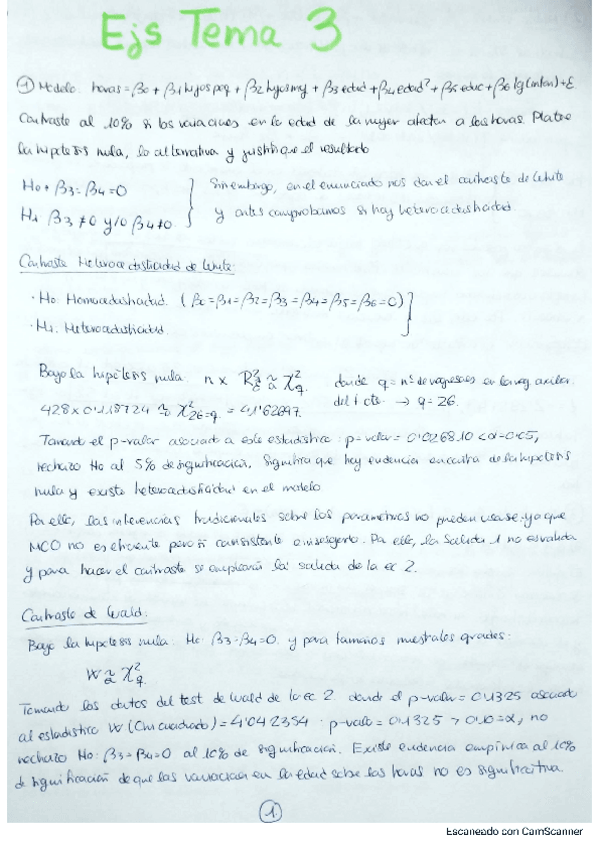 Ejs Tema 3
① Modelo: horas = β0 + β1 hijos peq + β2 hijos my + β3 edad + β4 edad² + β5 educ + β6 lg( ) + ε
Contraste al 10% si las variaciones en la edad de la mujer afectan a las horas. Plantee
la hipótesis nula, la alternativa y justifique el resultado
H0 = β3 = β4 = 0
H1 β3 ≠ 0 y/o β4 ≠ 0
Sin embargo, en el enunciado nos dan el contraste de White
y antes comprobamos si hay heterocedasticidad.
Contraste Heterocedasticidad de White:
· H0: Homocedasticidad. (β0 = β1 = β2 = β3 = β4 = β5 = β6 = 0)
· H1: Heterocedasticidad.
Bajo la hipótesis nula: n x R² ≈ χ²q donde q = nº de regresores en la reg. auxiliar
428 x 0'118724 ≈ χ²26=q = 41'62697. del cte. → q = 26.
Tomando el p-valor asociado a este estadístico: p-valor = 0'026810 < α = 0'05,
rechazo H0 al 5% de significación. Significa que hay evidencia en contra de la hipótesis
nula y existe heterocedasticidad en el modelo
Por ello, las inferencias tradicionales sobre los parámetros no pueden usarse, ya que
MCO no es eficiente pero sí consistente e insesgado. Por ello, la Salida 1 no es válida
y para hacer el contraste se empleará la salida de la ec 2.
Contraste de Wald:
Bajo la hipótesis nula: H0: β3 = β4 = 0. y para tamaños muestrales grandes:
W ≈ χ²q.
Tomando los datos del test de Wald de la ec 2 donde el p-valor = 0'1325 asociado
al estadístico W (Chi cuadrado) = 4'042354 · p-valor = 0'1325 > 0'10 = α, no
rechazo H0: β3 = β4 = 0 al 10% de significación. Existe evidencia empírica al 10%
de significación de que las variaciones en la edad sobre las horas no es significativa.
1.
Escaneado con CamScanner